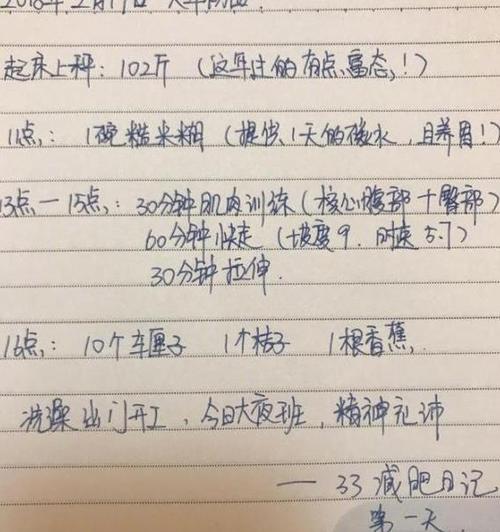 2018年2月
起床上秤：102斤（这年过的有点富态！）
11点：1碗糙米糊（提供1天的碳水，且养胃！）
13点一15点：30分钟肌肉训练（核心腹部+臀部）
60分钟快走（坡度9.时速5.7）
30分钟拉伸.
16点：10个车厘子 1个桔子 1根香蕉.
洗澡出门开工、今日大夜班，精神充沛
——33减肥日记
第一天